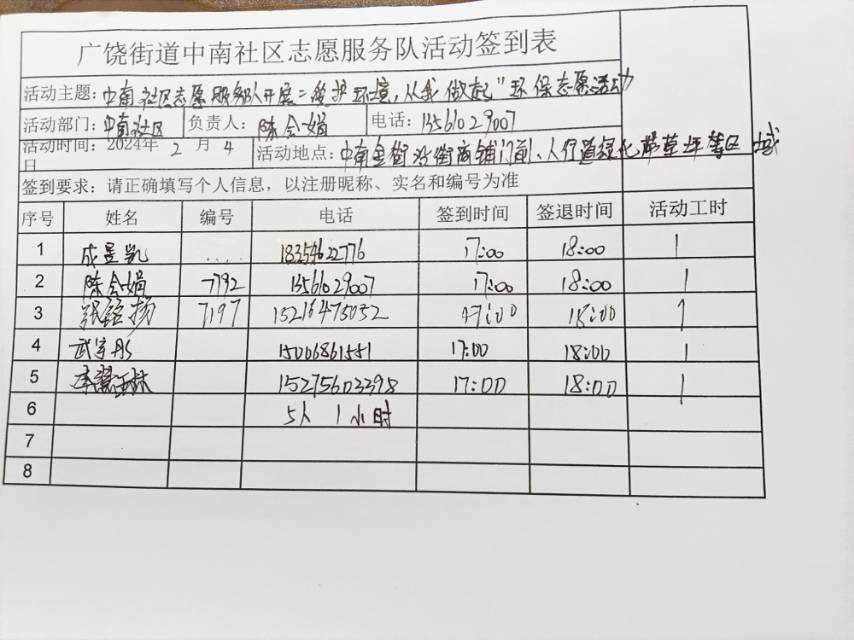 广饶街道中南社区志愿服务队活动签到表
活动主题：中南社区志愿服务队开展"维护环境，从我做起"环保志愿活动
活动部门：中南社区 负责人：陈会娟 电话：13561029007
活动时间：2024年 2 月 4日 活动地点：中南金街沿街商铺门前、人行道绿化带草坪等区域
签到要求：请正确填写个人信息，以注册昵称、实名和编号为准
序号 姓名 编号 电话 签到时间 签退时间 活动工时
1 成昱凯 .... 18354622776 17:00 18:00 1
2 陈会娟 7792 13561029007 17:00 18:00 1
3 张铭扬 7197 15216475052 17:00 18:00 1
4 武宇彤 15006861551 17:00 18:00 1
5 李慧 15275603398 17:00 18:00 1
6 5人 1小时
7
8